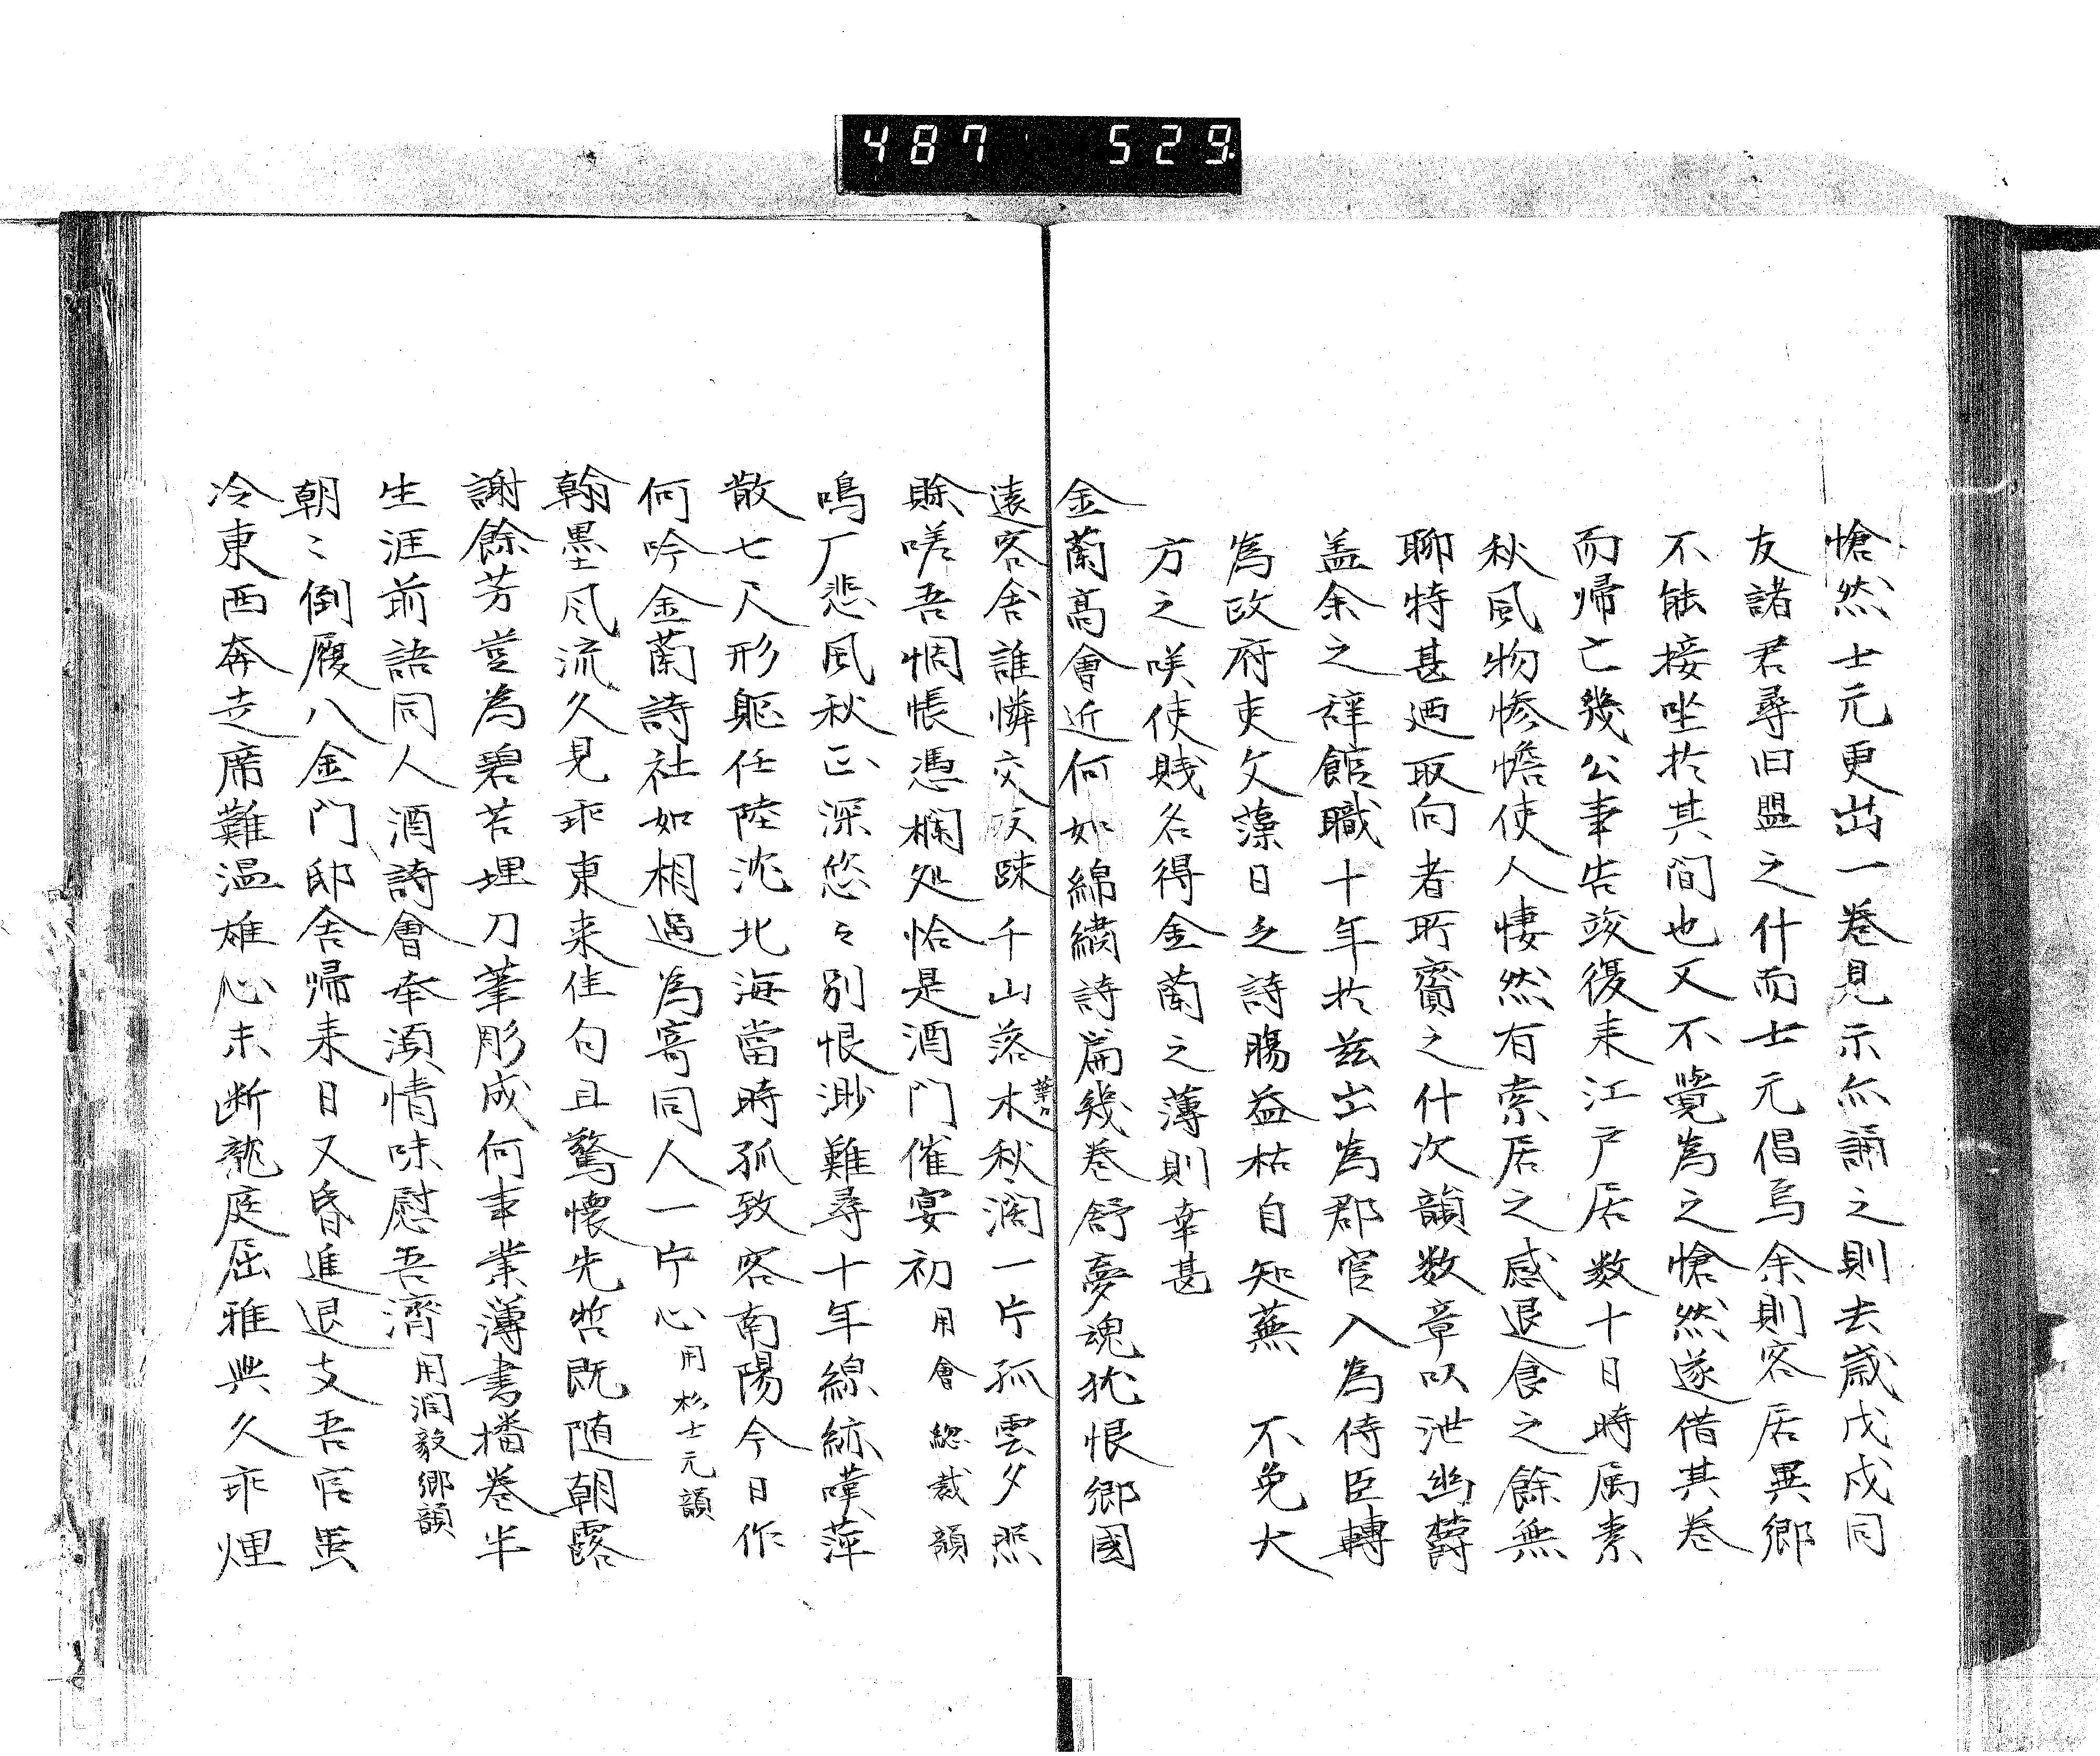 487 529
愴然士元更出一巻見示亦誦之則去歳戊戌同
友諸君尋旧盟之什而士元倡焉余則客居異郷
不能接坐於其間也又不覺為之愴然遂借其巻
而帰亡幾公事告竣復来江戸居数十日時属素
秋風物惨憺使人悽然有索居之感退食之餘無
聊特甚廼取向者所齎之什次韻数章以泄幽欝
盖余之辞館職十年於茲出為郡官入為侍臣轉
為政府吏文藻日乏詩腸益枯自知蕪 不免大
方之咲使賎名得金蘭之薄則幸甚
金蘭髙會近何如綿繍詩篇幾巻舒夢魂犹恨郷國
遠客舍誰憐交友踈千山落木葉秋濶一片孤雲夕照
賖嗟吾惆悵憑欄処恰是酒門催宴初用會總裁韻
鳴厂悲風秋正深悠々別恨渺難尋十年線紡嘆萍
散七尺形躯任陸沈北海當時孤致客南陽今日作
何吟金蘭詩社如相過為寄同人一片心用杉士元韻
翰墨风流久見乖東来佳句且驚懐先哲既随朝露
謝餘芳豈為碧苔埋刀筆彫成何事業薄書播巻半
生涯前語同人酒詩會奉須情味慰吾濟用潤毅郷韻
朝〻倒履八金門邸舍帰来日又昏進退支吾官虽
冷東西奔走席難温雄心未断龍庭屈雅興久乖煙